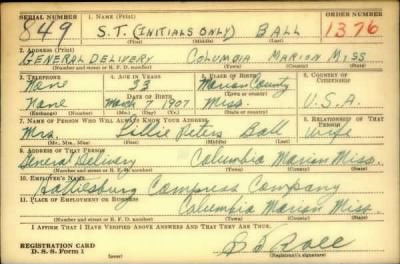 SERIAL NUMBER 1. NAME (Print) ORDER NUMBER
849 S.T. (INITIALS ONLY) BALL 1376
(First) (Middle) (Last)
2. ADDRESS (Print)
GENERAL DELIVERY COLUMBIA MARION MISS
(Number and street or R. F. D. number) (Town) (County) (State)
3. TELEPHONE 4. AGE IN YEARS 5. PLACE OF BIRTH 6. COUNTRY OF CITIZENSHIP
None 33 Marion County
DATE OF BIRTH (Town or county)
None March 7, 1907 Miss. U.S.A.
(Exchange) (Number) (Mo.) (Day) (Yr.) (State or country)
7. NAME OF PERSON WHO WILL ALWAYS KNOW YOUR ADDRESS 8. RELATIONSHIP OF THAT PERSON
Mrs. Lillie Peters Ball Wife
(Mr., Mrs., Miss) (First) (Middle) (Last)
9. ADDRESS OF THAT PERSON
General Delivery Columbia Marion Miss.
(Number and street or R. F. D. number) (Town) (County) (State)
10. EMPLOYER'S NAME
Hattiesburg Compress Company
11. PLACE OF EMPLOYMENT OR BUSINESS
Columbia Marion Miss.
(Number and street or R. F. D. number) (Town) (County) (State)
I AFFIRM THAT I HAVE VERIFIED ABOVE ANSWERS AND THAT THEY ARE TRUE.
REGISTRATION CARD
D. S. S. Form 1 (Registrant's signature)